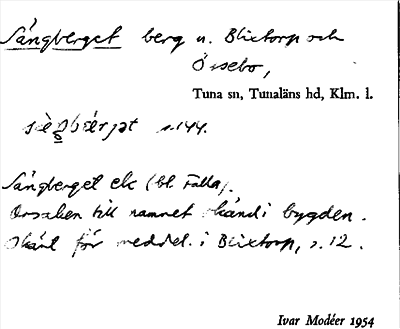 Sångberget berg n. Blixtorp och
Örsebo,
Tuna sn, Tunaläns hd, Klm. l.
s.144.
Sångberget ek (bl. Fälla).
Orsaken till namnet okänd i bygden.
Okänt för meddel. i Blixtorp, s.12.
Ivar Modéer 1954